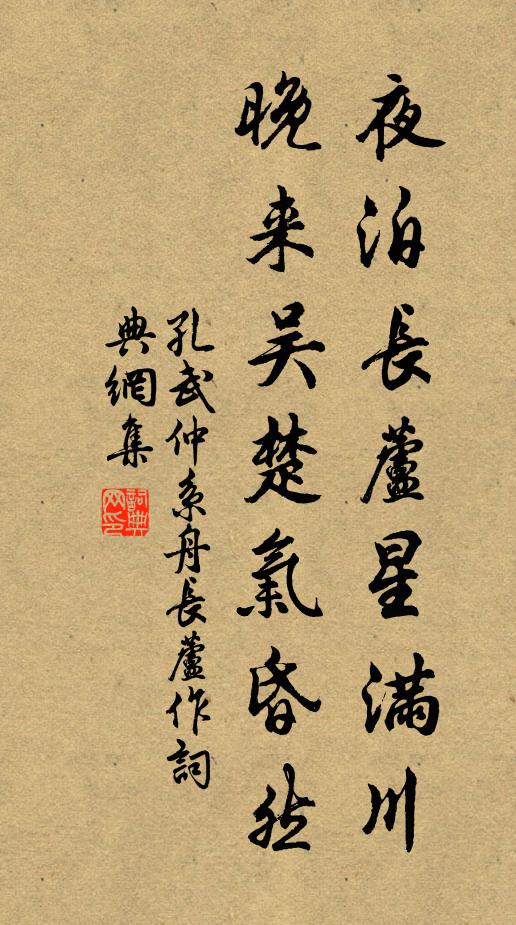 夜泊長蘆星滿川
晚来吴楚氣昏然
孔武仲系舟長蘆作詞
典網集
詞典網印